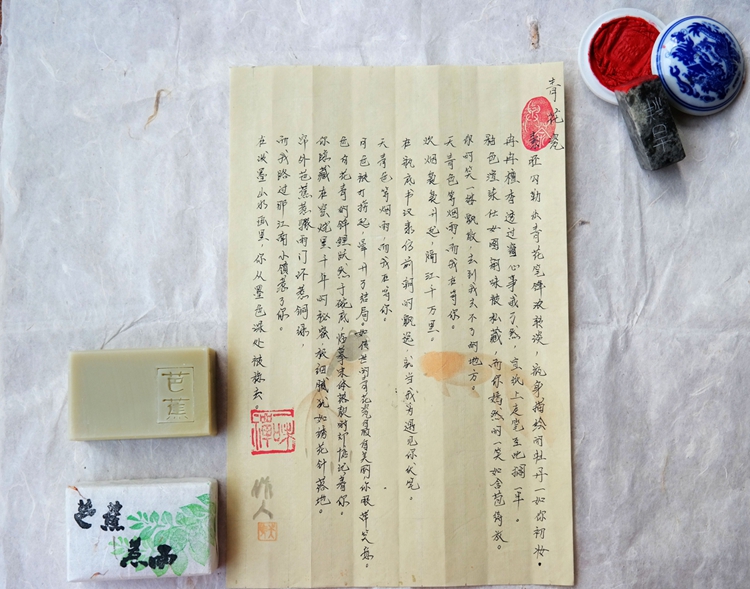 青花瓷
素胚勾勒出青花笔锋浓转淡，瓶身描绘的牡丹一如你初妆。
冉冉檀香透过窗心事我了然，宣纸上走笔至此搁一半。
釉色渲染仕女图韵味被私藏，而你嫣然的一笑如含苞待放。
你的笑一缕飘散，去到我去不了的地方。
天青色等烟雨，而我在等你。
炊烟袅袅升起，隔江千万里。
在瓶底书汉隶仿前朝的飘逸，就当我为遇见你伏笔。
天青色等烟雨，而我在等你。
月色被打捞起，晕开了结局。如传世的青花瓷自顾自美丽你眼带笑意。
色白花青的锦鲤跃然于碗底，临摹宋体落款时却惦记着你。
你隐藏在窑烧里千年的秘密，极细腻犹如绣花针落地。
帘外芭蕉惹骤雨门环惹铜绿，
而我路过那江南小镇惹了你。
在泼墨山水画里，你从墨色深处被隐去。
一味禪
作人
芭蕉
芭蕉
惹雨